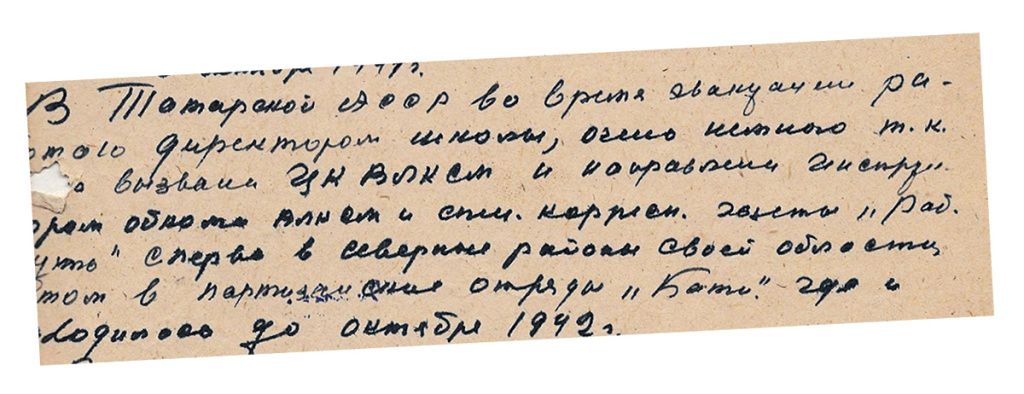 1941г.
В Татарской АССР во время эвакуации ра-
ботаю директором школы, очень немного т.к.
вызвана ЦК ВЛКСМ и направлена инструк
тором обкома ВЛКСМ и спец. корресп. газеты „Раб.
путь" сперва в северные районы своей области,
потом в партизанские отряды „Бати". где и
находилась до октября 1942г.